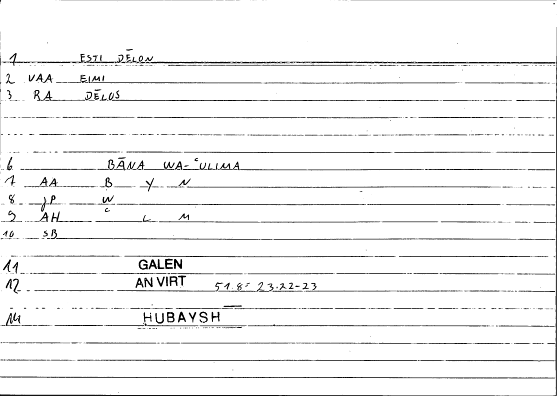 1 ESTI DĒLON
2 VAA EIMI
3 RA DĒLOS
6 BĀNA WA-ʿULIMA
7 AA B Y N
8 JP W
9 AH ʿ L M
10 SB
11 GALEN
12 AN VIRT 51.8= 23.22-23
14 HUBAYSH